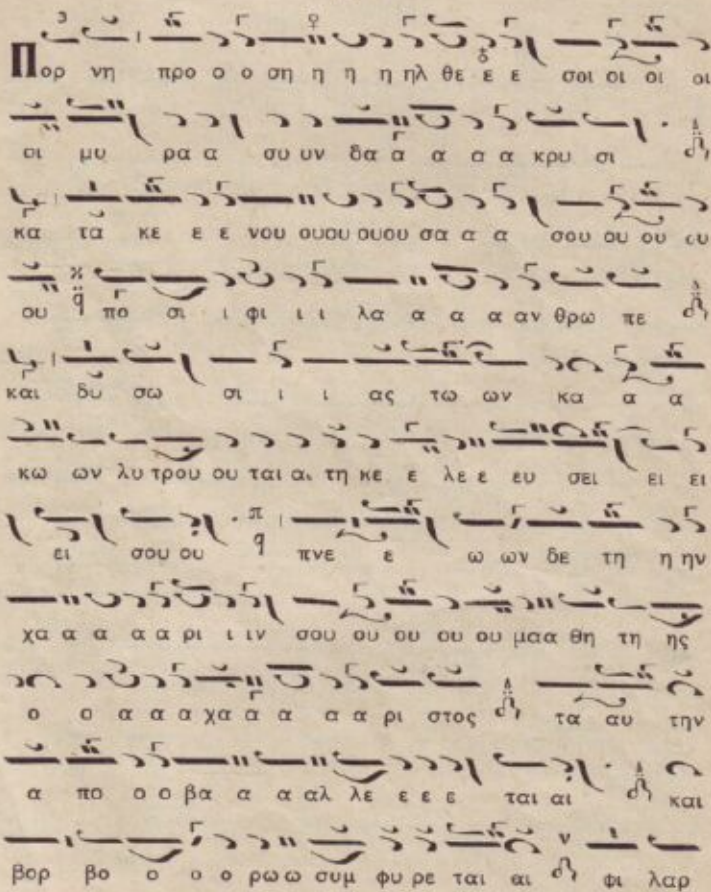 Πορ νη προ ο ο ση η η η ηλ θε ε ε σοι οι οι οι
οι μυ ρα α συ υν δα α α α α κρυ σι
κα τα κε ε ε νου ουου ουου σα α α σου ου ου ου
ου πο σι ι φι ι ι λα α α α αν θρω πε
και δυ σω σι ι ι ας τω ων κα α α
κω ων λυ τρου ου ται αι τη κε ε λε ε ευ σει ει ει
ει σου ου πνε ε ω ων δε τη η ην
χα α α α α ρι ι ιν σου ου ου ου ου μα α θη τη ης
ο ο α α α χα α α α α ρι στος τα αυ την
α πο ο ο βα α α αλ λε ε ε ε ται αι και
βορ βο ο ο ο ρω ω συμ φυ ρε ται αι φι λαρ